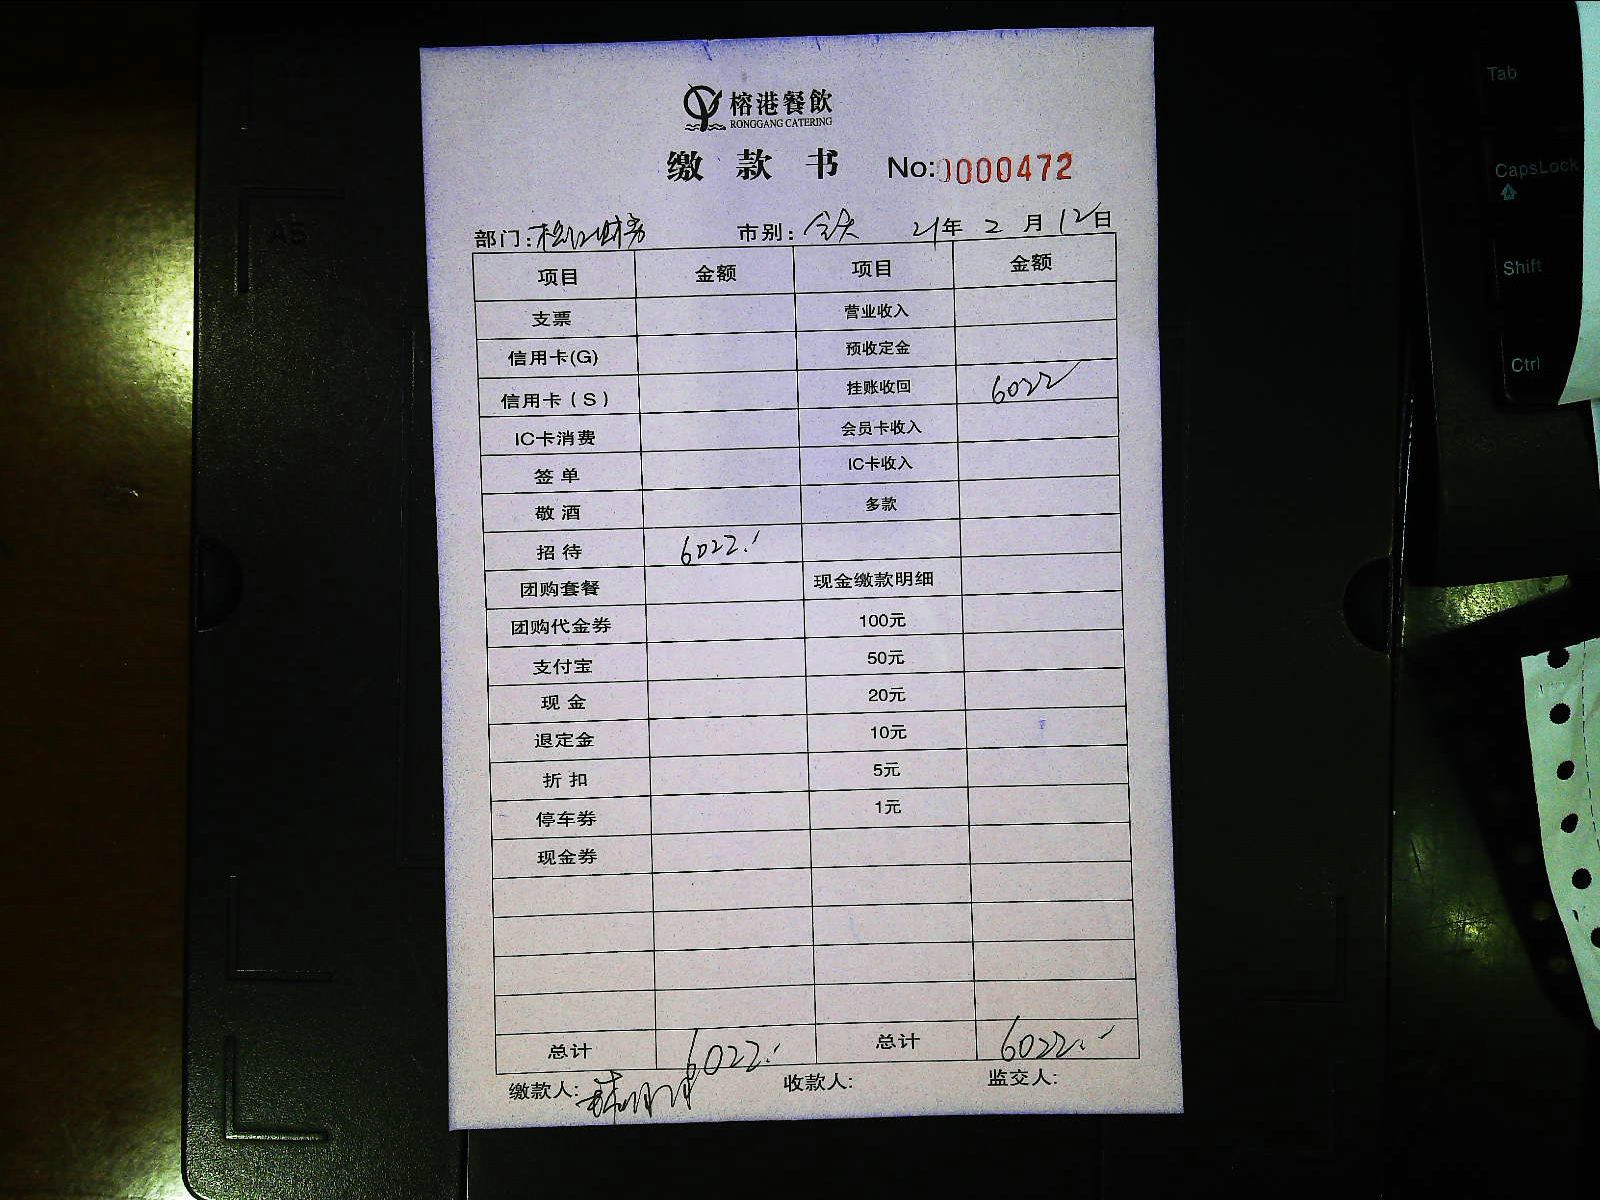 榕港餐飲
RONGGANG CATERING
缴款书 No:0000472
部门: 财务 市别: 全天 21年 2月 12日
项目 金额 项目 金额
支票 营业收入
信用卡(G) 预收定金
信用卡(S) 挂账收回 6022
IC卡消费 会员卡收入
签单 IC卡收入
敬酒 多款
招待 6022.
团购套餐 现金缴款明细
团购代金券 100元
支付宝 50元
现金 20元
退定金 10元
折扣 5元
停车券 1元
现金券
总计 6022. 总计 6022.
缴款人: 收款人: 监交人:
Tab
CapsLock
Shift
Ctrl
A5